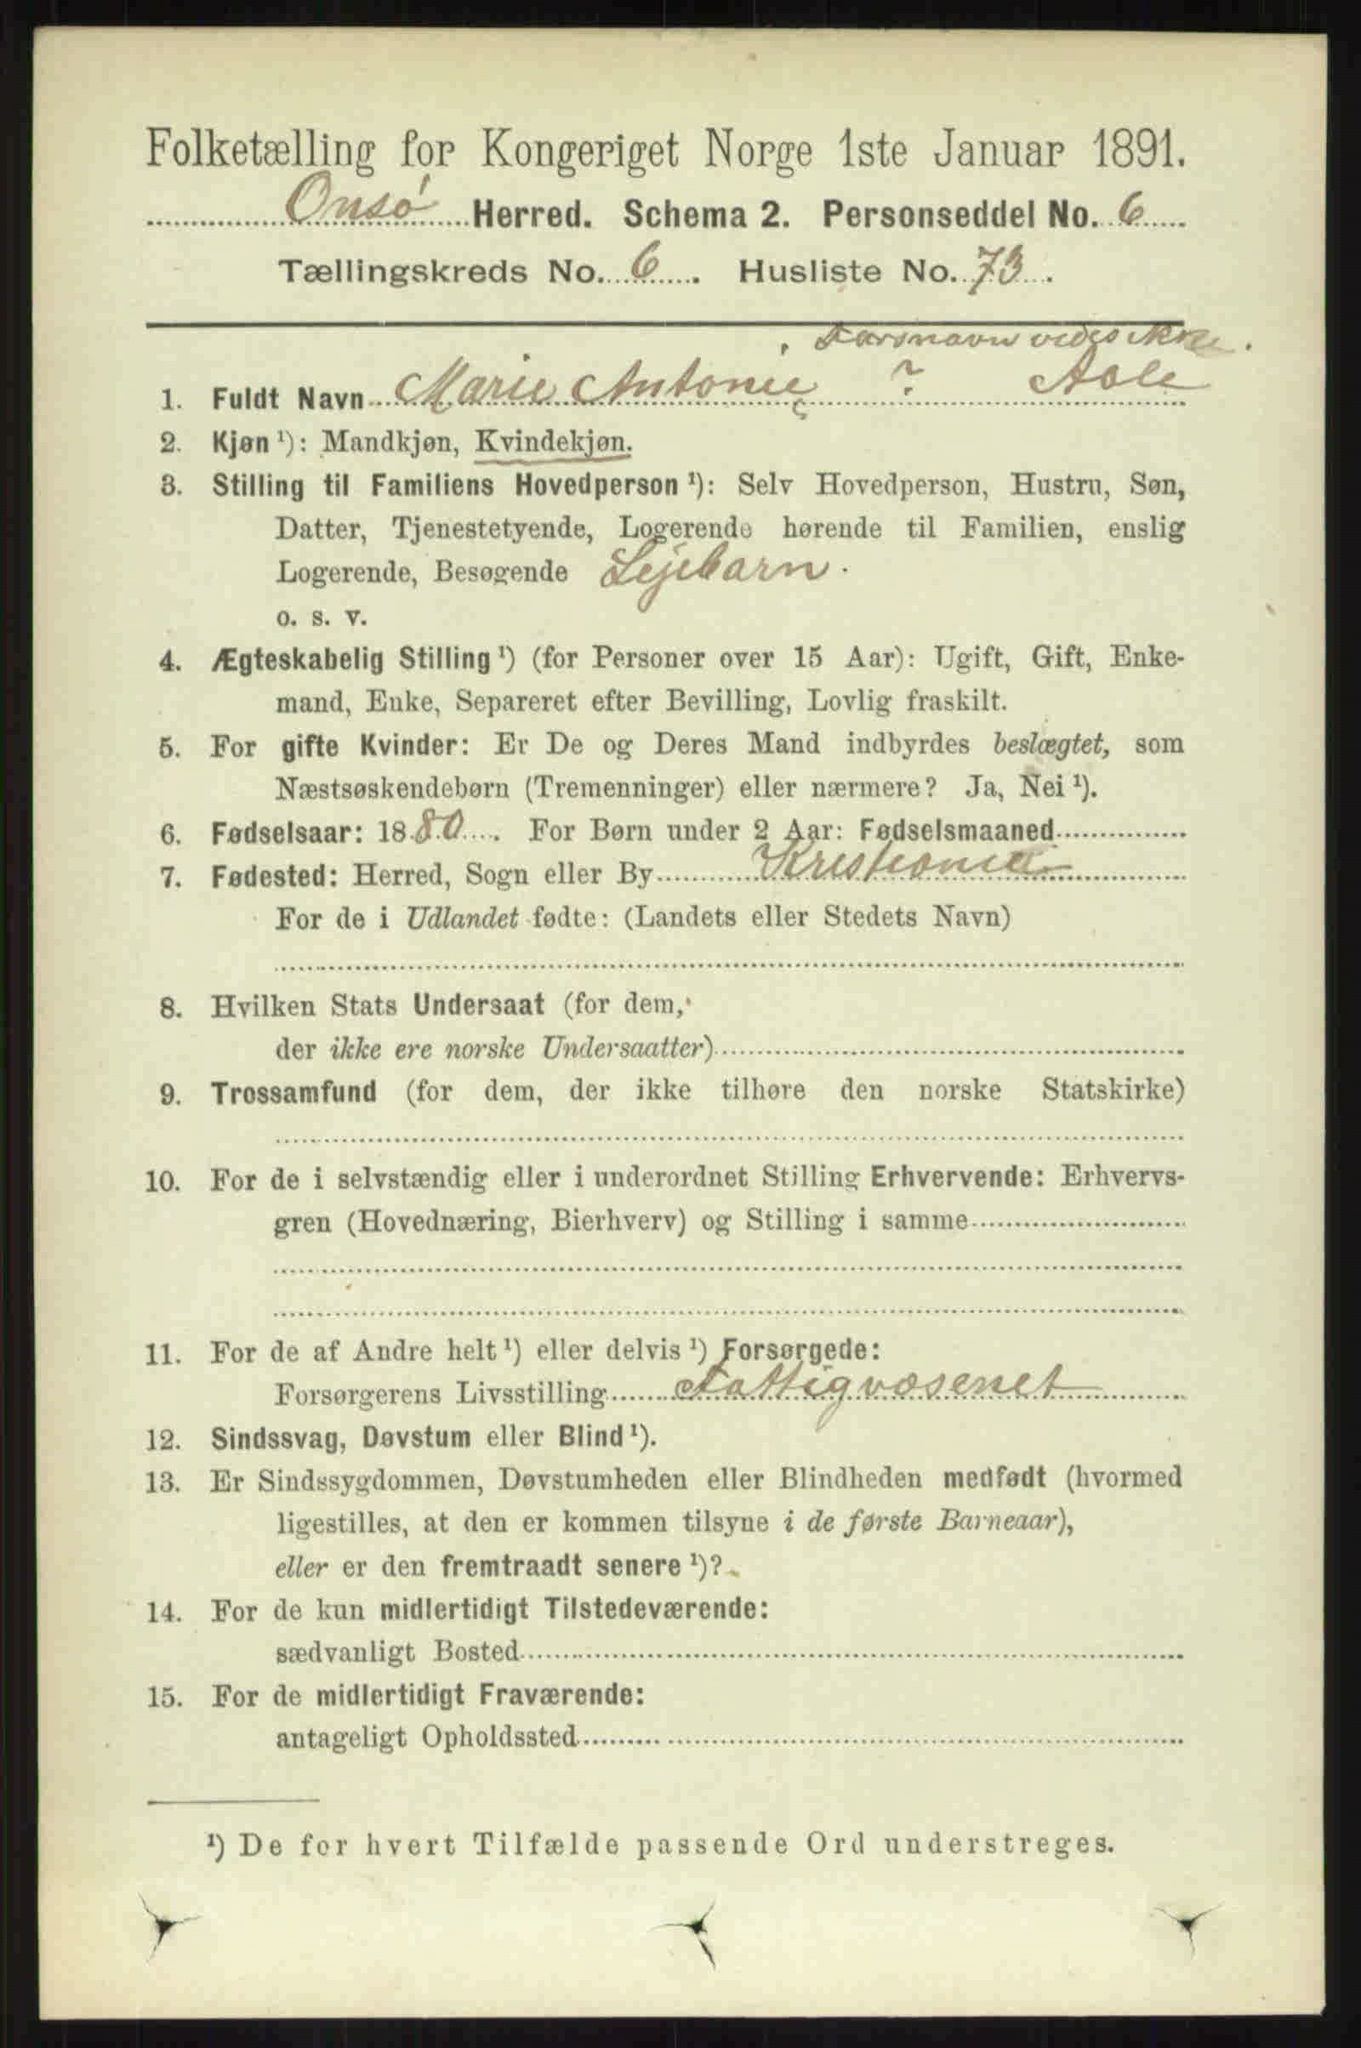 Folketælling for Kongeriget Norge 1ste Januar 1891.
Onsø Herred. Schema 2. Personseddel No. 6
Tællingskreds No. 6. Husliste No. 73.
Farsnavn vides ikke.
1. Fuldt Navn Marie Antonie ? Aole
2. Kjøn ¹): Mandkjøn, Kvindekjøn.
3. Stilling til Familiens Hovedperson ¹): Selv Hovedperson, Hustru, Søn,
Datter, Tjenestetyende, Logerende hørende til Familien, enslig
Logerende, Besøgende Lejebarn.
o. s. v.
4. Ægteskabelig Stilling ¹) (for Personer over 15 Aar): Ugift, Gift, Enke-
mand, Enke, Separeret efter Bevilling, Lovlig fraskilt.
5. For gifte Kvinder: Er De og Deres Mand indbyrdes beslægtet, som
Næstsøskendebørn (Tremenninger) eller nærmere? Ja, Nei ¹).
6. Fødselsaar: 1880. For Børn under 2 Aar: Fødselsmaaned
7. Fødested: Herred, Sogn eller By Kristiania
For de i Udlandet fødte: (Landets eller Stedets Navn)
8. Hvilken Stats Undersaat (for dem,
der ikke ere norske Undersaatter)
9. Trossamfund (for dem, der ikke tilhøre den norske Statskirke)
10. For de i selvstændig eller i underordnet Stilling Erhvervende: Erhvervs-
gren (Hovednæring, Bierhverv) og Stilling i samme
11. For de af Andre helt ¹) eller delvis ¹) Forsørgede:
Forsørgerens Livsstilling Fattigvæsenet
12. Sindssvag, Døvstum eller Blind ¹).
13. Er Sindssygdommen, Døvstumheden eller Blindheden medfødt (hvormed
ligestilles, at den er kommen tilsyne i de første Barneaar),
eller er den fremtraadt senere ¹)?
14. For de kun midlertidigt Tilstedeværende:
sædvanligt Bosted
15. For de midlertidigt Fraværende:
antageligt Opholdssted
¹) De for hvert Tilfælde passende Ord understreges.